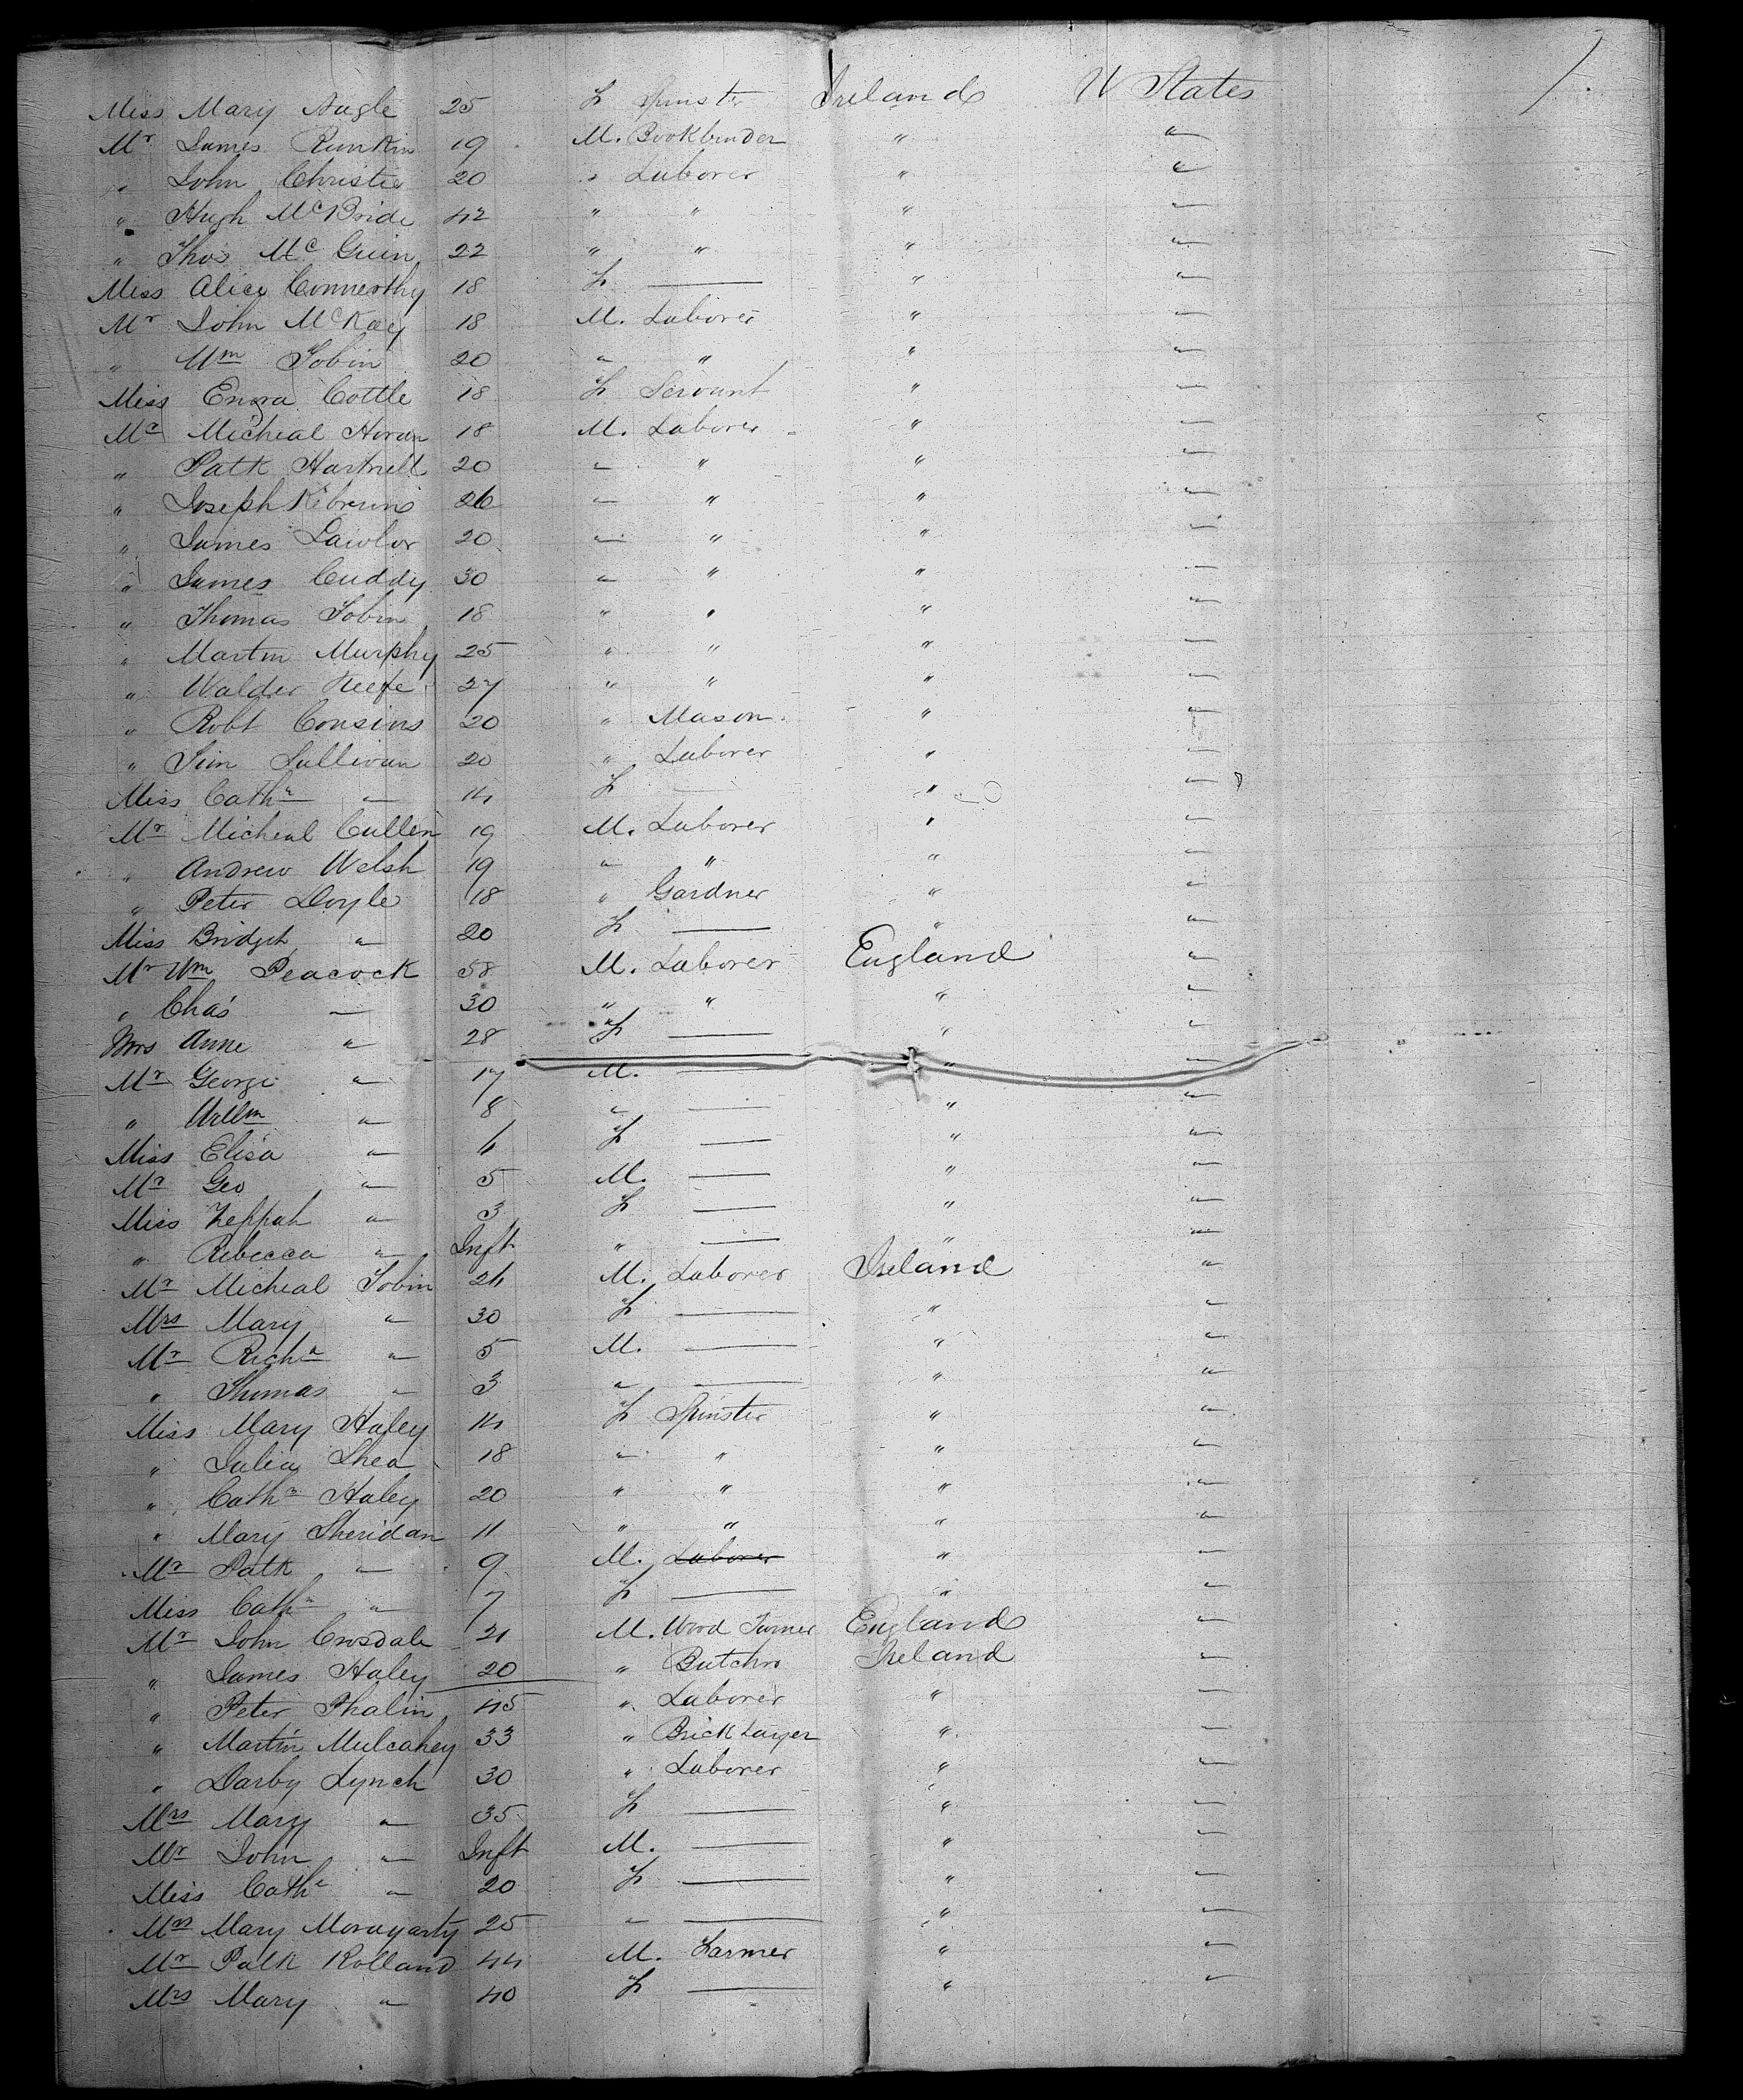 Miss Mary Nagle 25 F Spinster Ireland U States
Mr James Runkin 19 M. Bookbinder " "
" John Christie 20 " Laborer " "
" Hugh McBride 42 " " " "
" Thos Mc Guin 22 " " " "
Miss Alice Connerthy 18 F — " "
Mr John McKay 18 M. Laborer " "
" Wm Tobin 20 " " " "
Miss Cottle 18 F Servant " "
Mr Micheal Horan 18 M. Laborer " "
" Patk Hartnett 20 " " " "
" Joseph 26 " " " "
" James Lawlor 20 " " " "
" James Cuddy 30 " " " "
" Thomas Tobin 18 " " " "
" Martin Murphy 25 " " " "
" Walder Keefe 27 " " " "
" Robt Cousins 20 " Mason " "
" Tim Sullivan 20 " Laborer " "
Miss Cathn " 14 F — " "
Mr Micheal Cullen 19 M. Laborer " "
" Andrew Welsh 19 " " " "
" Peter Doyle 18 " Gardner " "
Miss Bridget " 20 F — " "
Mr Wm Peacock 58 M. Laborer England "
" Chas — 30 " " " "
Mrs Anne " 28 F — " "
Mr George " 17 M. — " "
" Willm " 8 " — " "
Miss Elisa " 6 F — " "
Mr Geo " 5 M. — " "
Miss Zeppah " 3 F — " "
" Rebecca " Inft " — " "
Mr Micheal Tobin 26 M. Laborer Ireland "
Mrs Mary " 30 F — " "
Mr Richd " 5 M. — " "
" Thomas " 3 " — " "
Miss Mary Haley 14 F Spinster " "
" Julia Shea 18 " " " "
" Cathn Haley 20 " " " "
" Mary Sheridan 11 " " " "
Mr Patk — 9 M. Laborer " "
Miss Cathn " 7 F — " "
Mr John Crosdale 21 M. Wood Turner England "
" James Haley 20 " Butcher Ireland "
" Peter Phalin 45 " Laborer " "
" Martin Mulcahey 33 " Brick Layer " "
" Darby Lynch 30 " Laborer " "
Mrs Mary " 35 F — " "
Mr John " Inft M. — " "
Miss Cathe " 20 F — " "
Mrs Mary Morayarty 25 " — " "
Mr Patk Rolland 44 M. Farmer " "
Mrs Mary " 40 F — " "